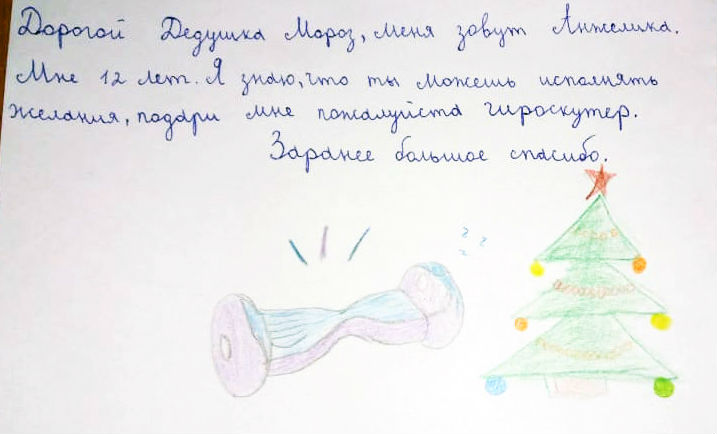 Дорогой Дедушка Мороз, меня зовут Анжелика.
Мне 12 лет. Я знаю, что ты можешь исполнять
желания, подари мне пожалуйста гироскутер.
Заранее большое спасибо.